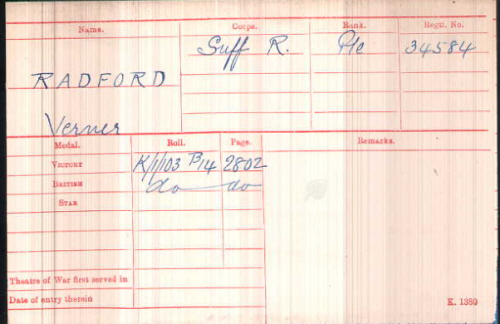 Name. Corps. Rank. Regtl. No.
Suff R. Pte 34584
RADFORD
Verner
Medal. Roll. Page. Remarks.
VICTORY K/1/103 B14 2802
BRITISH do do
STAR
Theatre of War first served in
Date of entry therein
K. 1380